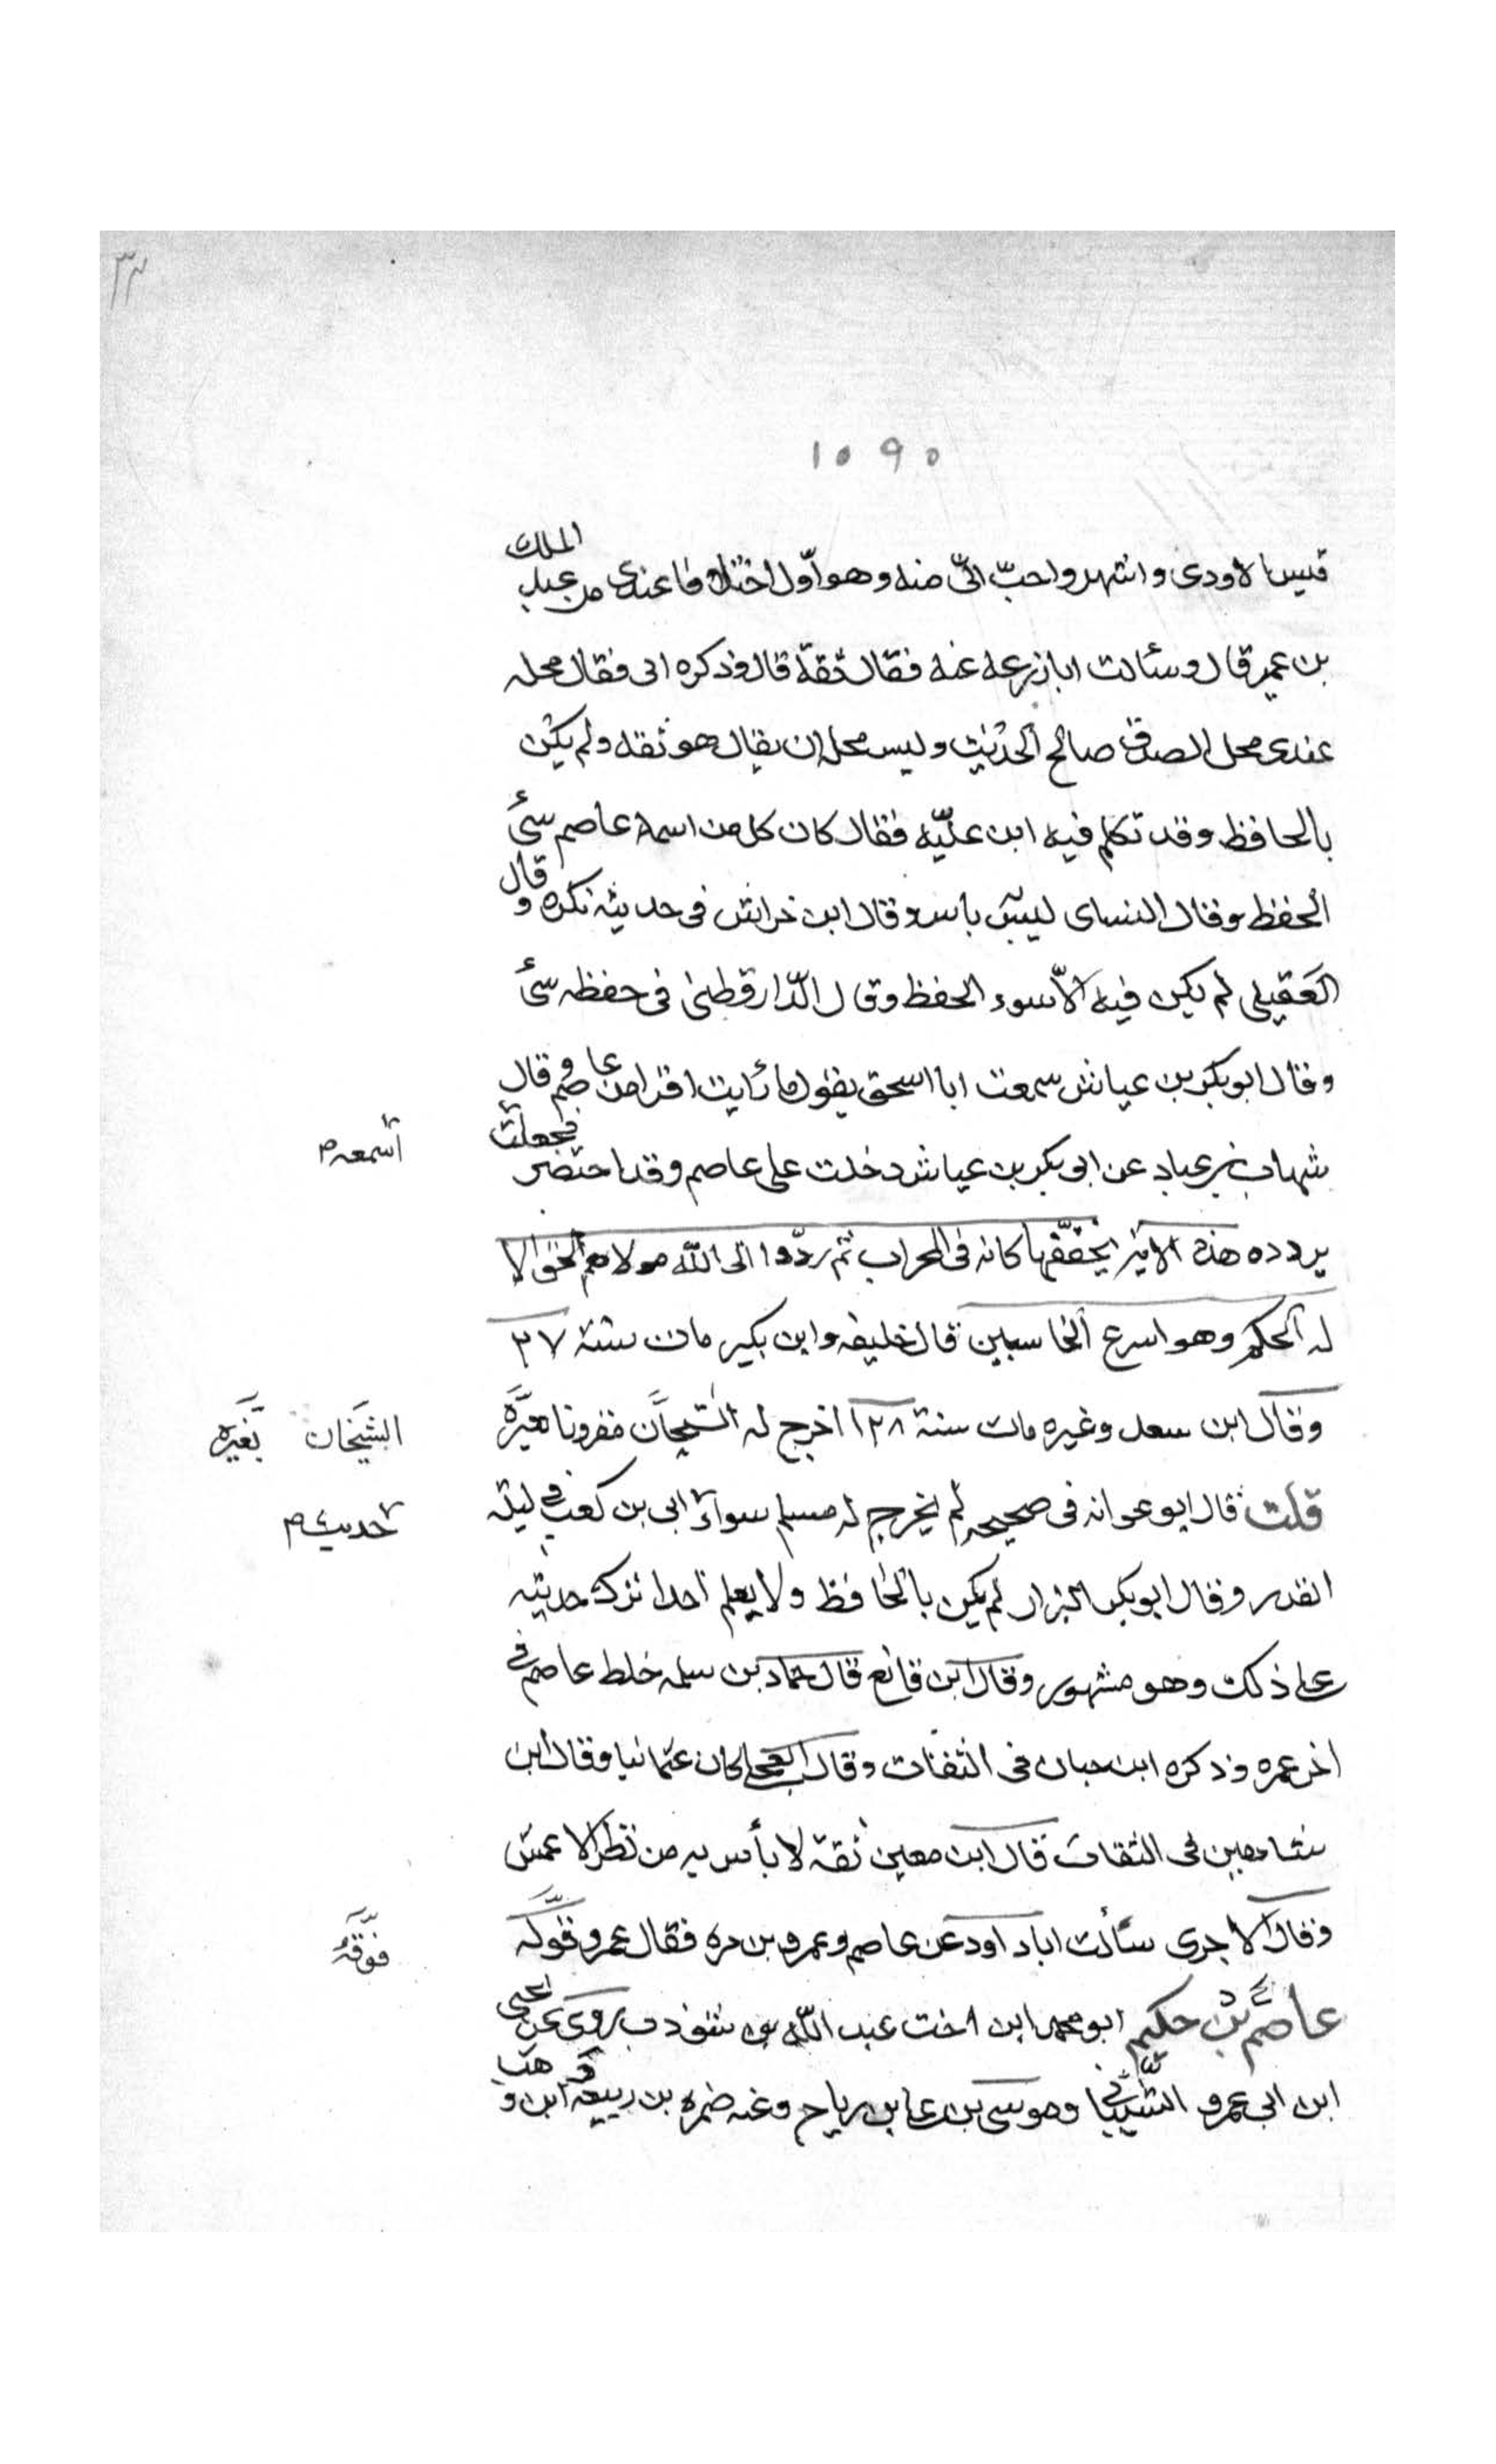 ١٥٩٠
قيس الاودى واشهر واحبّ الىّ منه وهو اوّل اختلافا عندى من عبد الملك
بن عمير قال وسئالت ابا زرعة عنه فقال ثقة قال وذكره ابى فقال محله
عندى محل الصدق صالح الحديث وليس محله ان يقال هو ثقة ولم يكن
بالحافظ وقد تكلم فيه ابن عليّه فقال كان كل من اسمه عاصم سئ
الحفظ وقال النساى ليس به باس وقال ابن خراش فى حديثه نكره وقال
العقيلى لم يكن فيه الاّ سوء الحفظ وقال الدّارقطنى فى حفظه شئ
وقال ابو بكر بن عياش سمعت ابا اسحق يقول ما رايت اقرا من عاصم وقال
شهاب بن عباد عن ابى بكر بن عياش دخلت على عاصم وقد احتضر فجعلت
اسمعه م
يردده هذه الاية يحققها كانه فى المحراب ثم ردّوا الى الله مولاهم الحق الا
له الحكم وهو اسرع الحاسبين قال خليفه وابن بكير مات سنة ٢٧
وقال ابن سعد وغيره مات سنة ١٢٨ اخرج له الشيخان مقرونا
الشيخان بغيره
قلت قال ابو عوانه فى صحيحه لم يخرج له مسلم سواء ابى بن كعب فى ليلة
حديث م
القدر وقال ابو بكر البزار لم يكن بالحافظ ولا يعلم احدا ترك حديثه
على ذلك وهو مشهور وقال ابن قانع قال حماد بن سلمه خلط عاصم فى
اخر عمره وذكره ابن حبان فى الثقات وقال العجلى كان عثمانيا وقال ابن
شاهين فى الثقات قال ابن معين ثقة لا بأس به من نظر الاعمش
وقال الاجرى سئالت ابا داود عن عاصم وعمرو بن مره فقال عمرو فوقه
فوقه
عاصم بن حكيم ابو محمد ابن اخت عبد الله بن شوذب روى عن يحيى
ابن ابى عمرو الشيبانى وموسى بن على بن رباح وعنه ضمره بن ربيعة وابن وهب